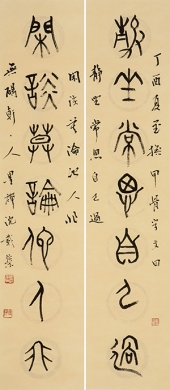 丁酉夏至撫甲骨字文曰
靜坐常思自己過
靜坐常思自己過
閑談莫論他人非
閑談莫論他人非